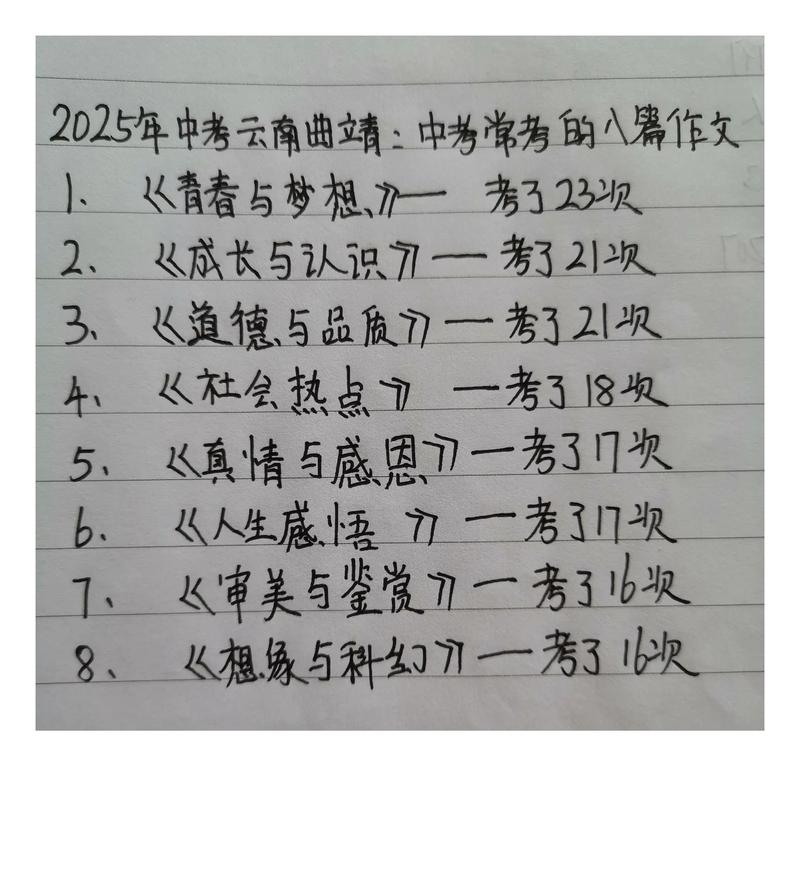 2025年中考云南曲靖：中考常考的八篇作文
1. 《青春与梦想》— 考了23次
2、 《成长与认识》— 考了21次
3、 《道德与品质》— 考了21次
4、 《社会热点》 — 考了18次
5、 《真情与感恩》— 考了17次
6、 《人生感悟》 — 考了17次
7、 《审美与鉴赏》— 考了16次
8、 《想象与科幻》— 考了16次